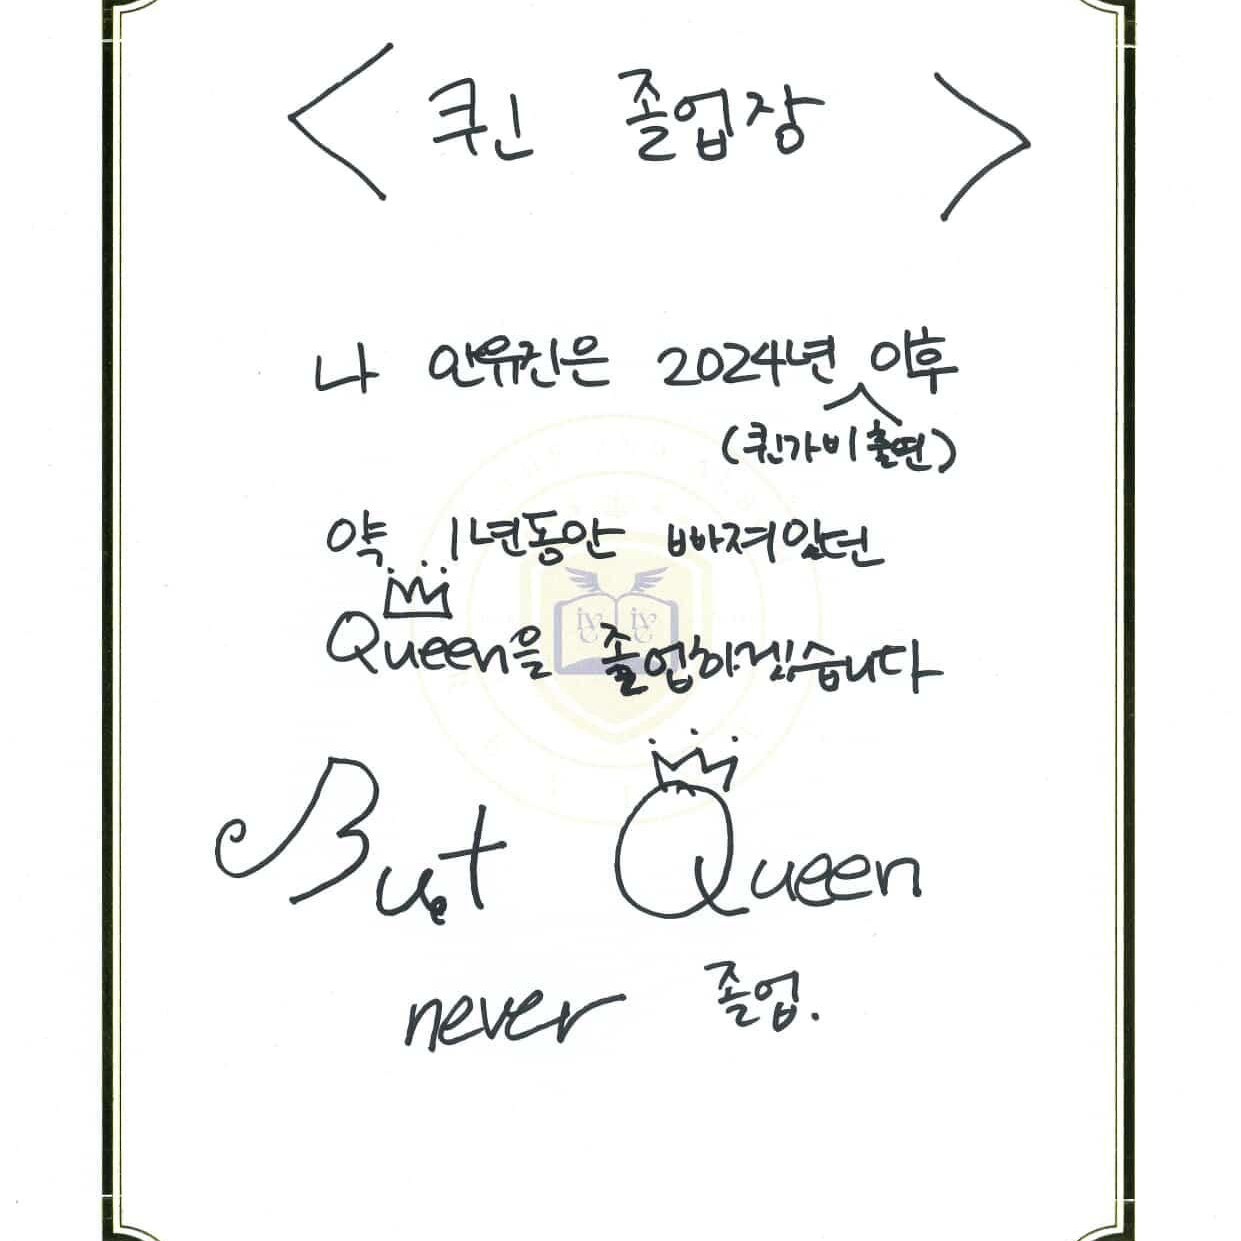 < 퀸 졸업장 >
나 안유진은 2024년 이후
(퀸가비 출연)
약 1년동안 빠져있던
Queen을 졸업하겠습니다
But Queen
never 졸업.